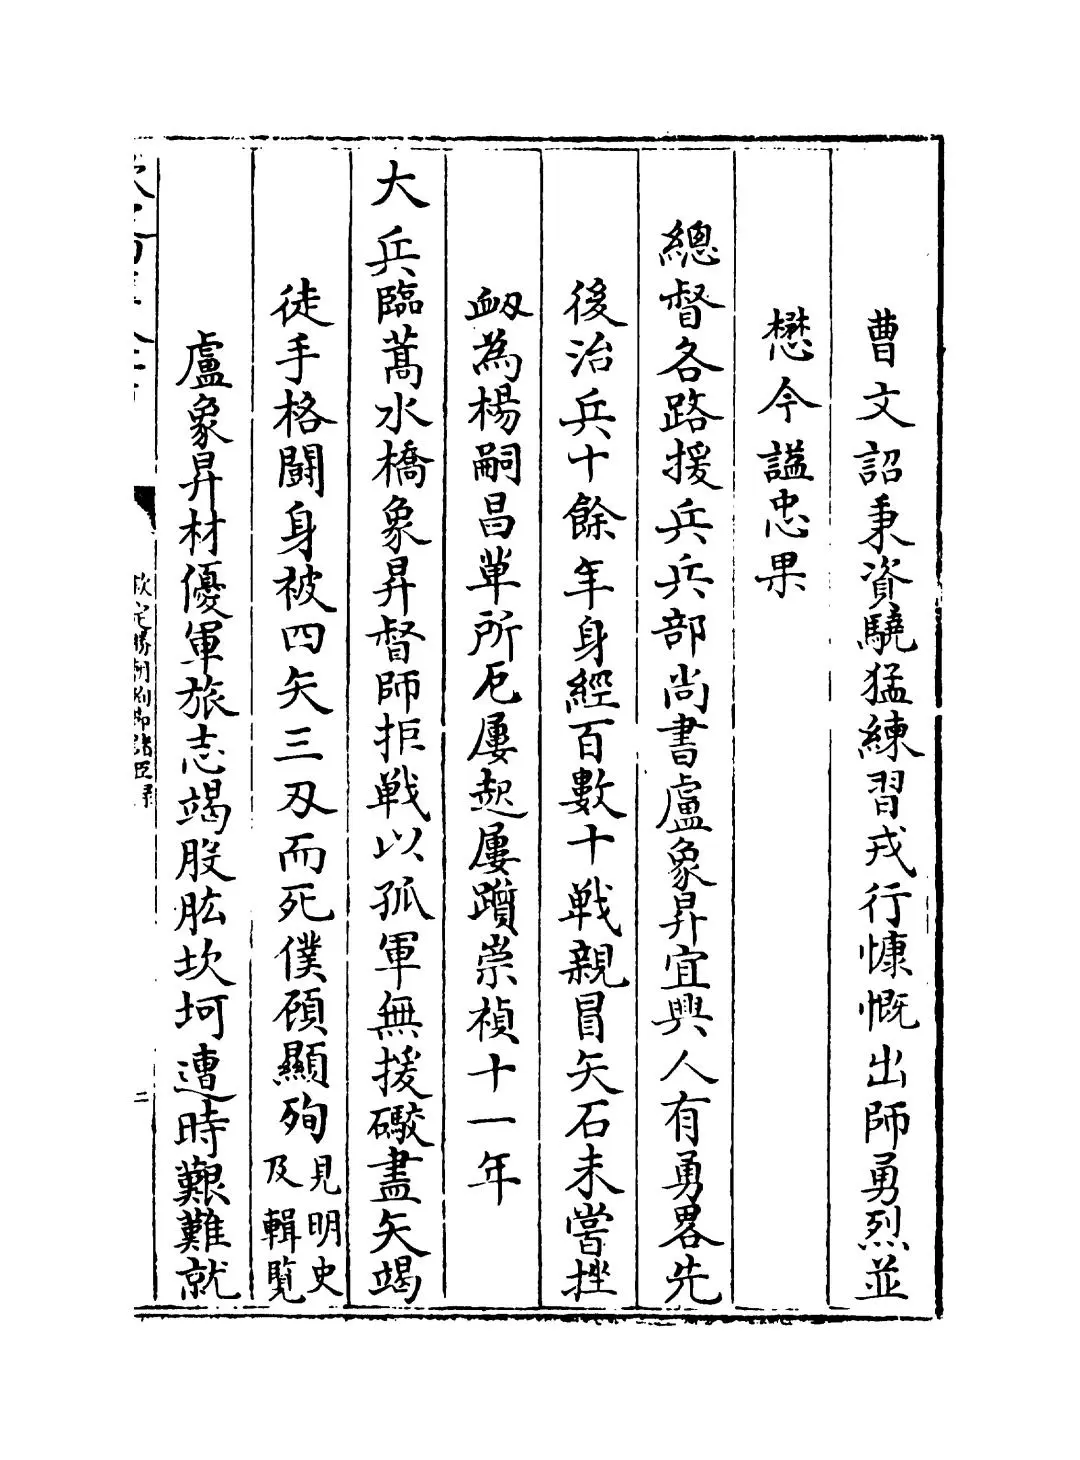 曹文詔秉資驍猛練習戎行慷慨出師勇烈並
懋今諡忠果
總督各路援兵兵部尚書盧象昇宜興人有勇畧先
後治兵十餘年身經百數十戰親冒矢石未嘗挫
衂為楊嗣昌軰所厄屢起屢躓崇禎十一年
大兵臨蒿水橋象昇督師拒戰以孤軍無援礮盡矢竭
徒手格鬬身被四矢三刃而死僕顧顯殉見明史及輯覽
盧象昇材優軍旅志竭股肱坎坷遭時艱難就
欽定勝朝殉節諸臣錄
二